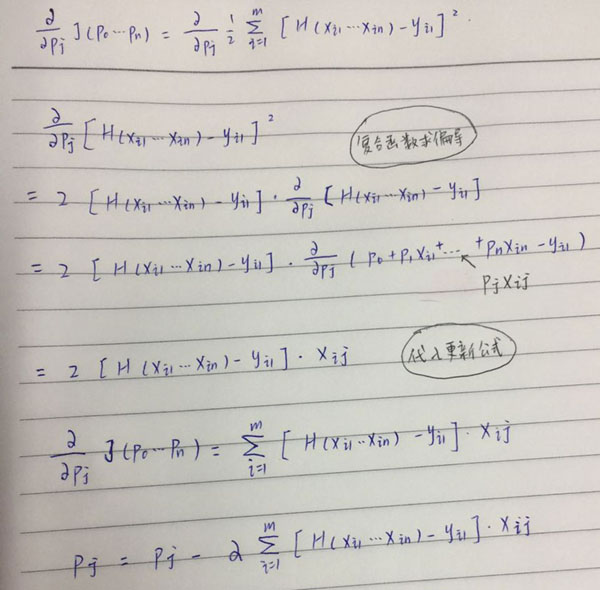 ∂/∂pj J(p0…pn) = ∂/∂pj 1/2 ∑_{i=1}^{m} [H(xi1…xin) − yi1]²
∂/∂pj [H(xi1…xin) − yi1]²
复合函数求偏导
= 2 [H(xi1…xin) − yi1] · ∂/∂pj [H(xi1…xin) − yi1]
= 2 [H(xi1…xin) − yi1] · ∂/∂pj (p0 + p1xi1 + … + pnxin − yi1)
pjxij
= 2 [H(xi1…xin) − yi1] · xij
代入更新公式
∂/∂pj J(p0…pn) = ∑_{i=1}^{m} [H(xi1…xin) − yi1] · xij
pj = pj − α ∑_{i=1}^{m} [H(xi1…xin) − yi1] · xij